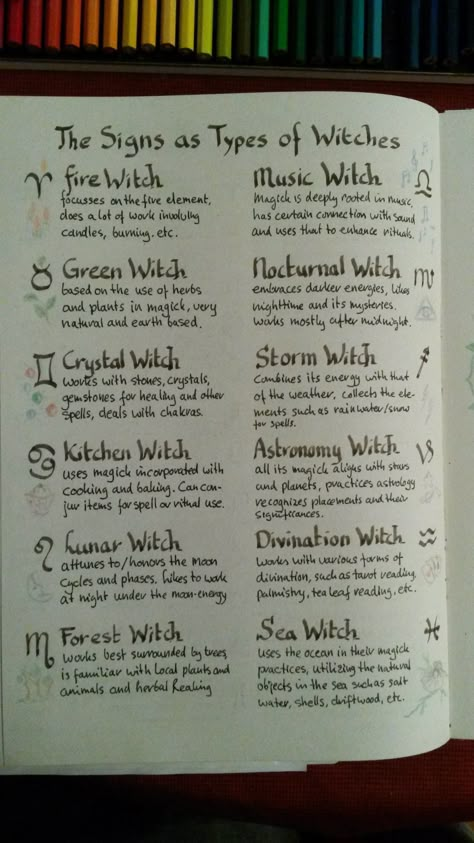 The Signs as Types of Witches
Fire Witch
focusses on the fire element,
does a lot of work involving
candles, burning. etc.
Green Witch
based on the use of herbs
and plants in magick, very
natural and earth based.
Crystal Witch
works with stones, crystals,
gemstones for healing and other
spells, deals with chakras.
Kitchen Witch
uses magick incorporated with
cooking and baking. Can con-
jur items for spell or ritual use.
Lunar Witch
attunes to/honors the Moon
cycles and phases. Likes to work
at night under the moon-energy
Forest Witch
works best surrounded by trees,
is familiar with local plants and
animals and herbal healing
Music Witch
Magick is deeply rooted in music,
has certain connection with sound
and uses that to enhance rituals.
Nocturnal Witch
embraces darker energies, likes
nighttime and its mysteries.
works mostly after midnight.
Storm Witch
Combines its energy with that
of the weather, collects the ele-
ments such as rainwater/snow
for spells.
Astronomy Witch
all its magick aligns with stars
and planets, practices astrology
recognizes placements and their
significances.
Divination Witch
Works with various forms of
divination, such as tarot reading,
palmistry, tea leaf reading, etc.
Sea Witch
uses the ocean in their magick
practices, utilizing the natural
objects in the sea such as salt
water, shells, driftwood, etc.